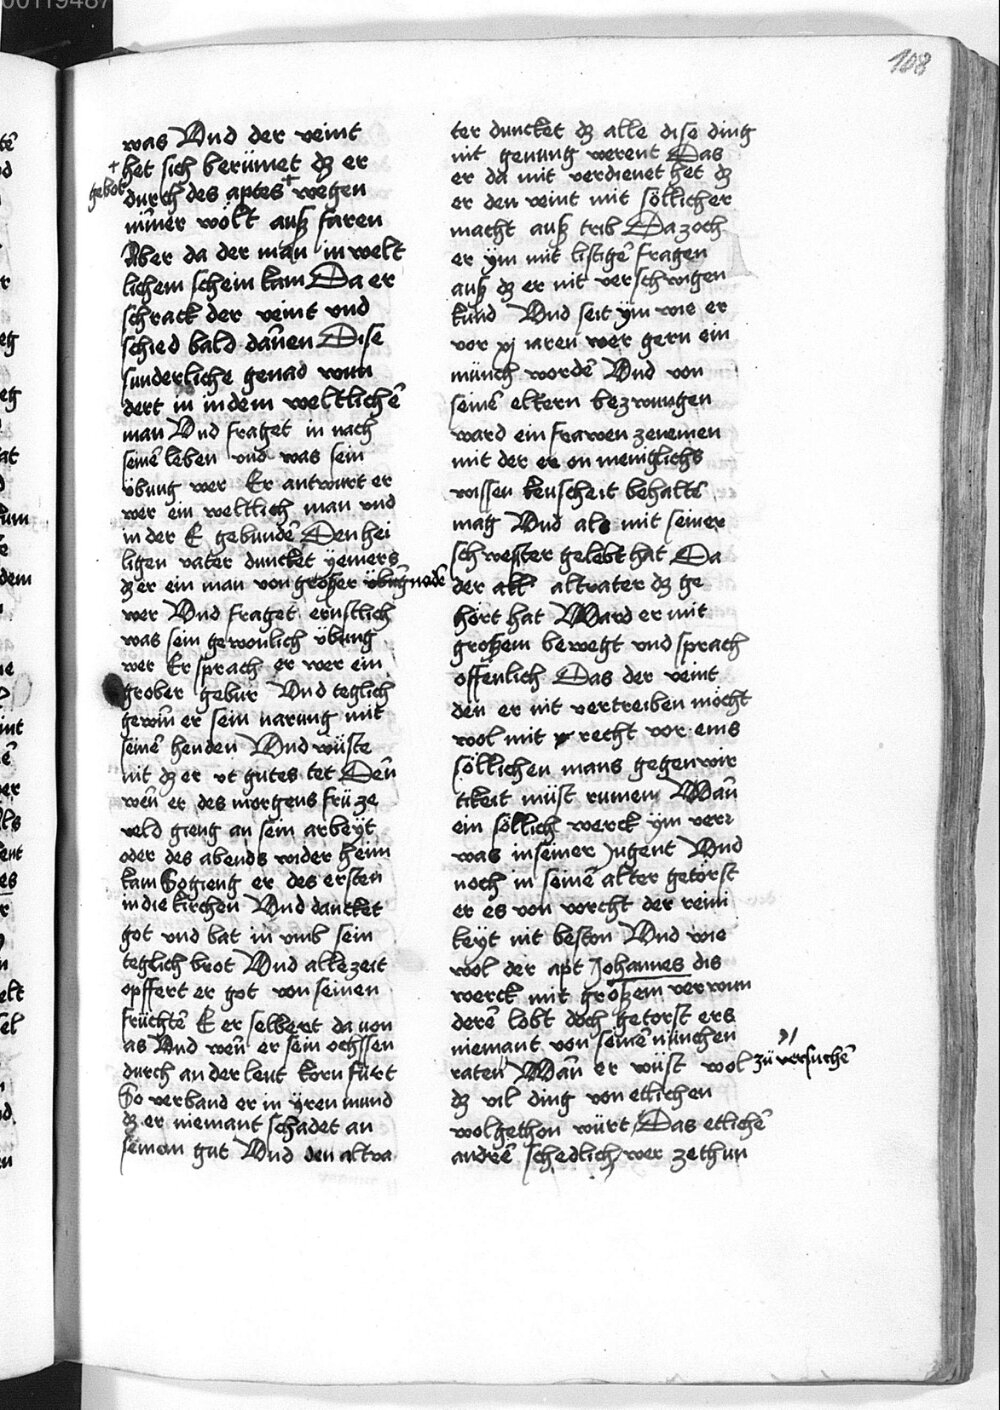 108
was Und der veint
+ het sich berümet dz er
gebot durch des aptes + wegen
nimer wölt ausz faren
Aber da der man in welt
lichem schein kam Da er
schrack der veint vnd
schied bald dañen Dise
sunderliche genad wun
dert in in dem weltlichē
man Und fraget in nach
seinē leben vnd was sein
übung wer Er antwurt er
wer ein weltlich man vnd
in der E gebundē Den hei
ligen vater duncket yemers
dz er ein man von groszer übūg
wer Und fraget ernstlich
was sein gewonlich übung
wer Er sprach er wer ein
grober gebur Und teglich
gewiñ er sein narung mit
seinē henden Und wüste
nit dz er vt gutes tet Deñ
weñ er des morgens frü ze
veld gieng an sein arbeyt
oder des abends wider heim
kam So gieng er des ersten
in die kirchen Und dancket
got vnd bat in vmb sein
teglich brot Und alle zeit
opffert er got von seinen
früchtē E er selbert da von
as Und weñ er sein ochssen
durch ander leut korn fürt
So verband er in yren mund
dz er niemant schadet an
seinem gut Und den altva
ter duncket dz alle dise ding
nit genung werent Das
er da mit verdienet het dz
er den veint mit söllicher
macht ausz trib Da zoch
er ym mit listigē fragen
ausz dz er nit verschwigen
kund Und seit ym wie er
vor xj iaren wer gern ein
münch wordē Und von
seinē eltern bezwungen
ward ein frawen zenemen
mit der er on meniglichs
wissen keuscheit behaltē
mag Und als mit seiner
schwester gelebt hat Da
der altvater dz ge
hört hat Ward er mit
groszem bewegt vnd sprach
offenlich Das der veint
den er nit vertreiben möcht
wol mit recht vor eins
söllichen mans gegenwir
tikeit müst rumen Wañ
ein söllich werck ym verr
was in seiner Jugent Und
noch in seinē alter getörst
er es von vorcht der reini
keyt nit beston Und wie
wol der apt Johannes dis
werck mit groszem verwun
derē lobt doch getorst ers
niemant von seinē münchen
raten Wañ er wüst wol zü versuchē
dz vil ding von etlichen
wolgethon würt Das etlichē
andrē schedlich wer zethun